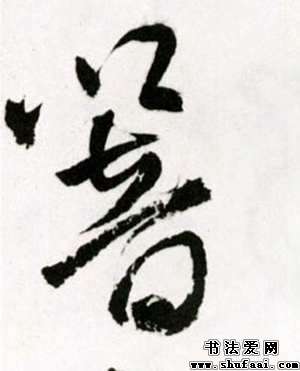 署
书法爱网
www.shufaai.com